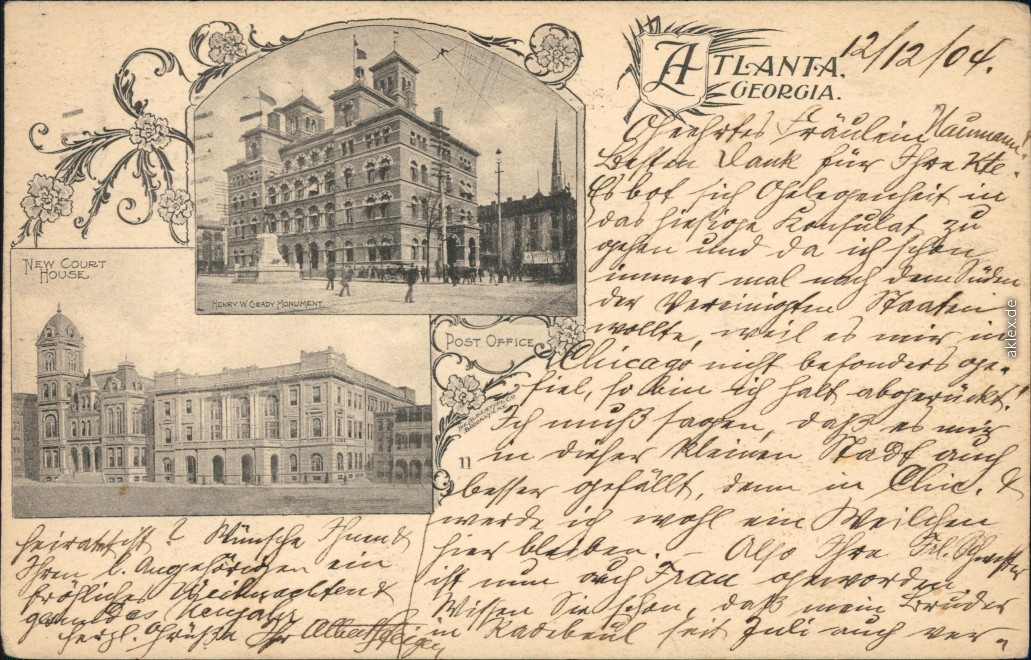 ATLANTA,
GEORGIA.
12/12/04.
NEW COURT
HOUSE.
HENRY W. GRADY MONUMENT.
POST OFFICE
11
Geehrtes Fräulein Naumann!
Besten Dank für Ihre Kte.
Es bot sich Gelegenheit in
das hiesige Konsulat zu
gehen und da ich schon
immer mal nach dem Süden
der Vereinigten Staaten
wollte, weil es mir in
Chicago nicht besonders ge-
fiel, so bin ich halt abgerückt!
Ich muß sagen, daß es mir
in dieser kleinen Stadt auch
besser gefällt, denn in Chic. &
werde ich wohl ein Weilchen
hier bleiben. – Also Ihre Frl.
ist nun auch Frau geworden
Wissen Sie schon, daß mein Bruder
in Radebeul seit Juli auch ver-
heiratet ist? Wünsche Ihnen &
Ihren l. Angehörigen ein
fröhliches Weihnachten &
gesundes Neujahr
herzl. Grüße Ihr
aklex.de